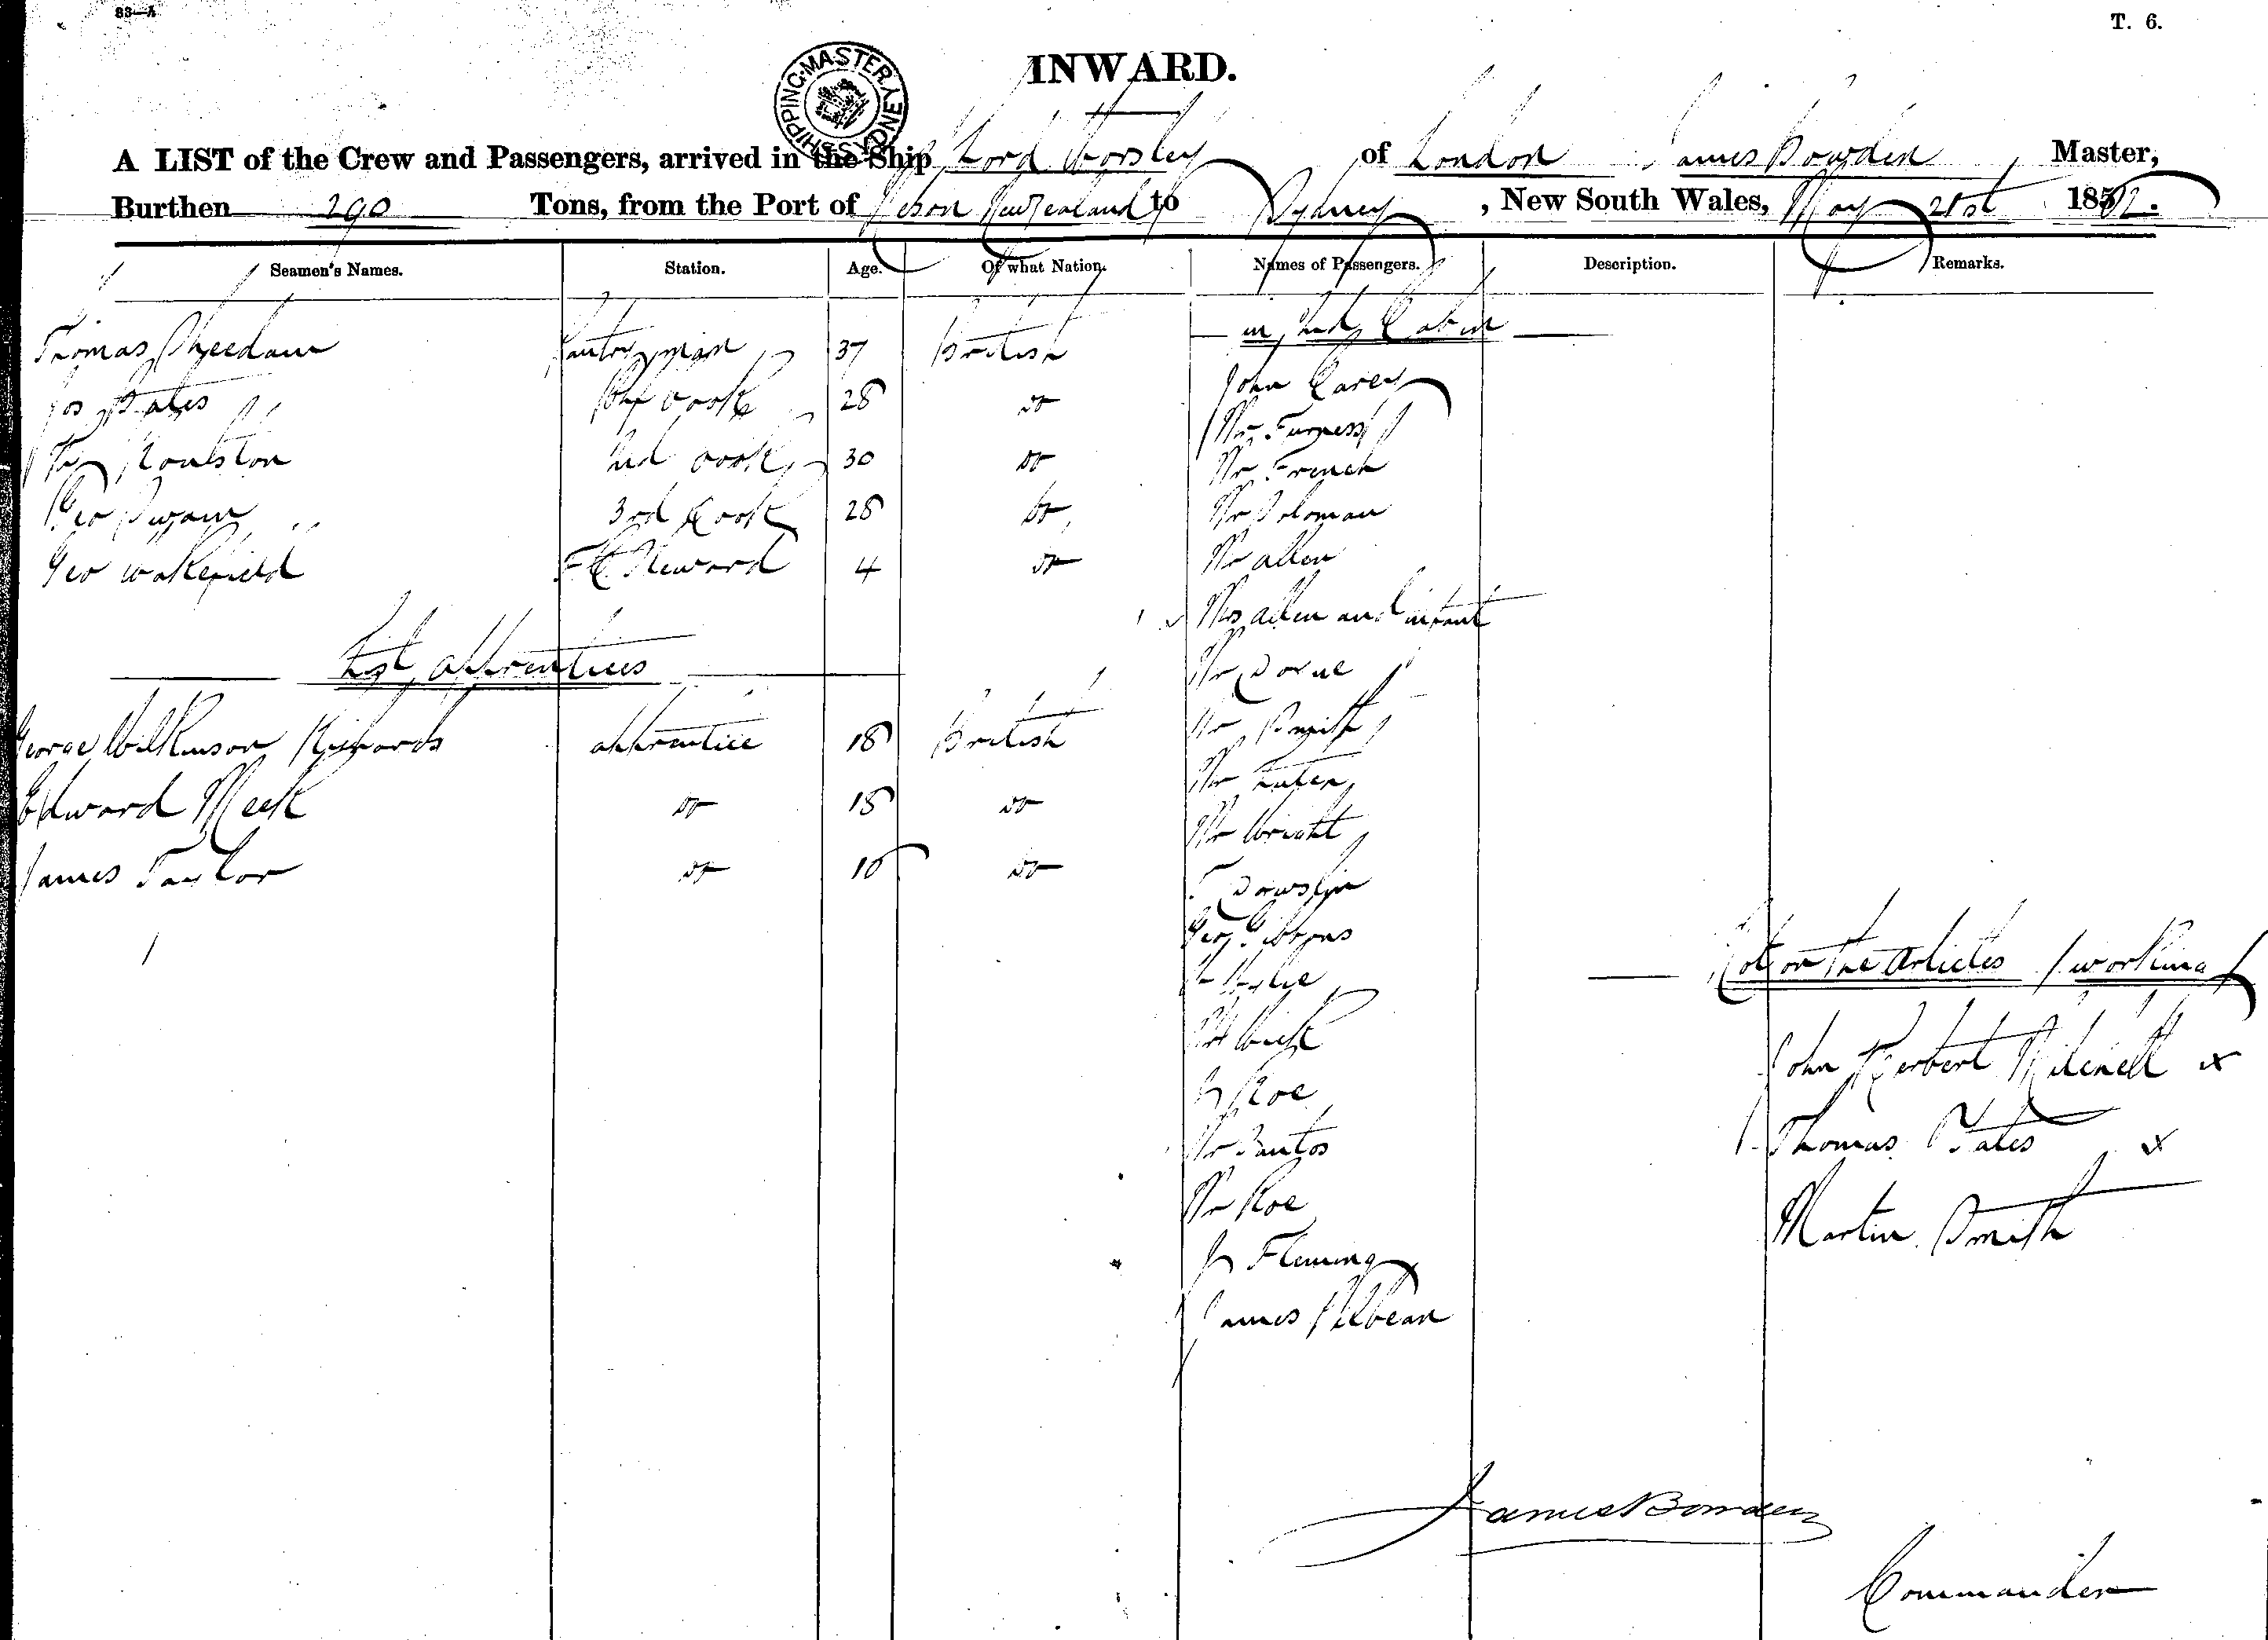 83—A
T. 6.
INWARD.
SHIPPING MASTER SYDNEY
A LIST of the Crew and Passengers, arrived in the Ship Lord Worsley of London James Bowden, Master,
Burthen 290 Tons, from the Port of Nelson New Zealand to Sydney, New South Wales, May 21st 1862.
Seamen's Names. Station. Age. Of what Nation. Names of Passengers. Description. Remarks.
in 2nd Cabin
Thomas Pantry man 37 British
John Carey
Jos Bates Chf Cook 28 do
Mr Furness
Roulston 2nd Cook 30 do
Mr French
Geo Swain 3rd Cook 28 do
Mr Soloman
Geo Wakefield F C Steward 4 do
Mr Allen
Mrs Allen and infant
List Apprentices
Mr
George Wilkinson Richards Apprentice 18 British
Mr Smith
Mr
Edward Meek do 18 do
Mr Wright
James Taylor do 16 do
Geo Gibbons
Not on the Articles / working
John Herbert Mitchell x
Roe
Thomas Yates x
Mr Santos
Mr Roe
Martin Smith
Fleming
James Pilbean
James Bowden
Commander